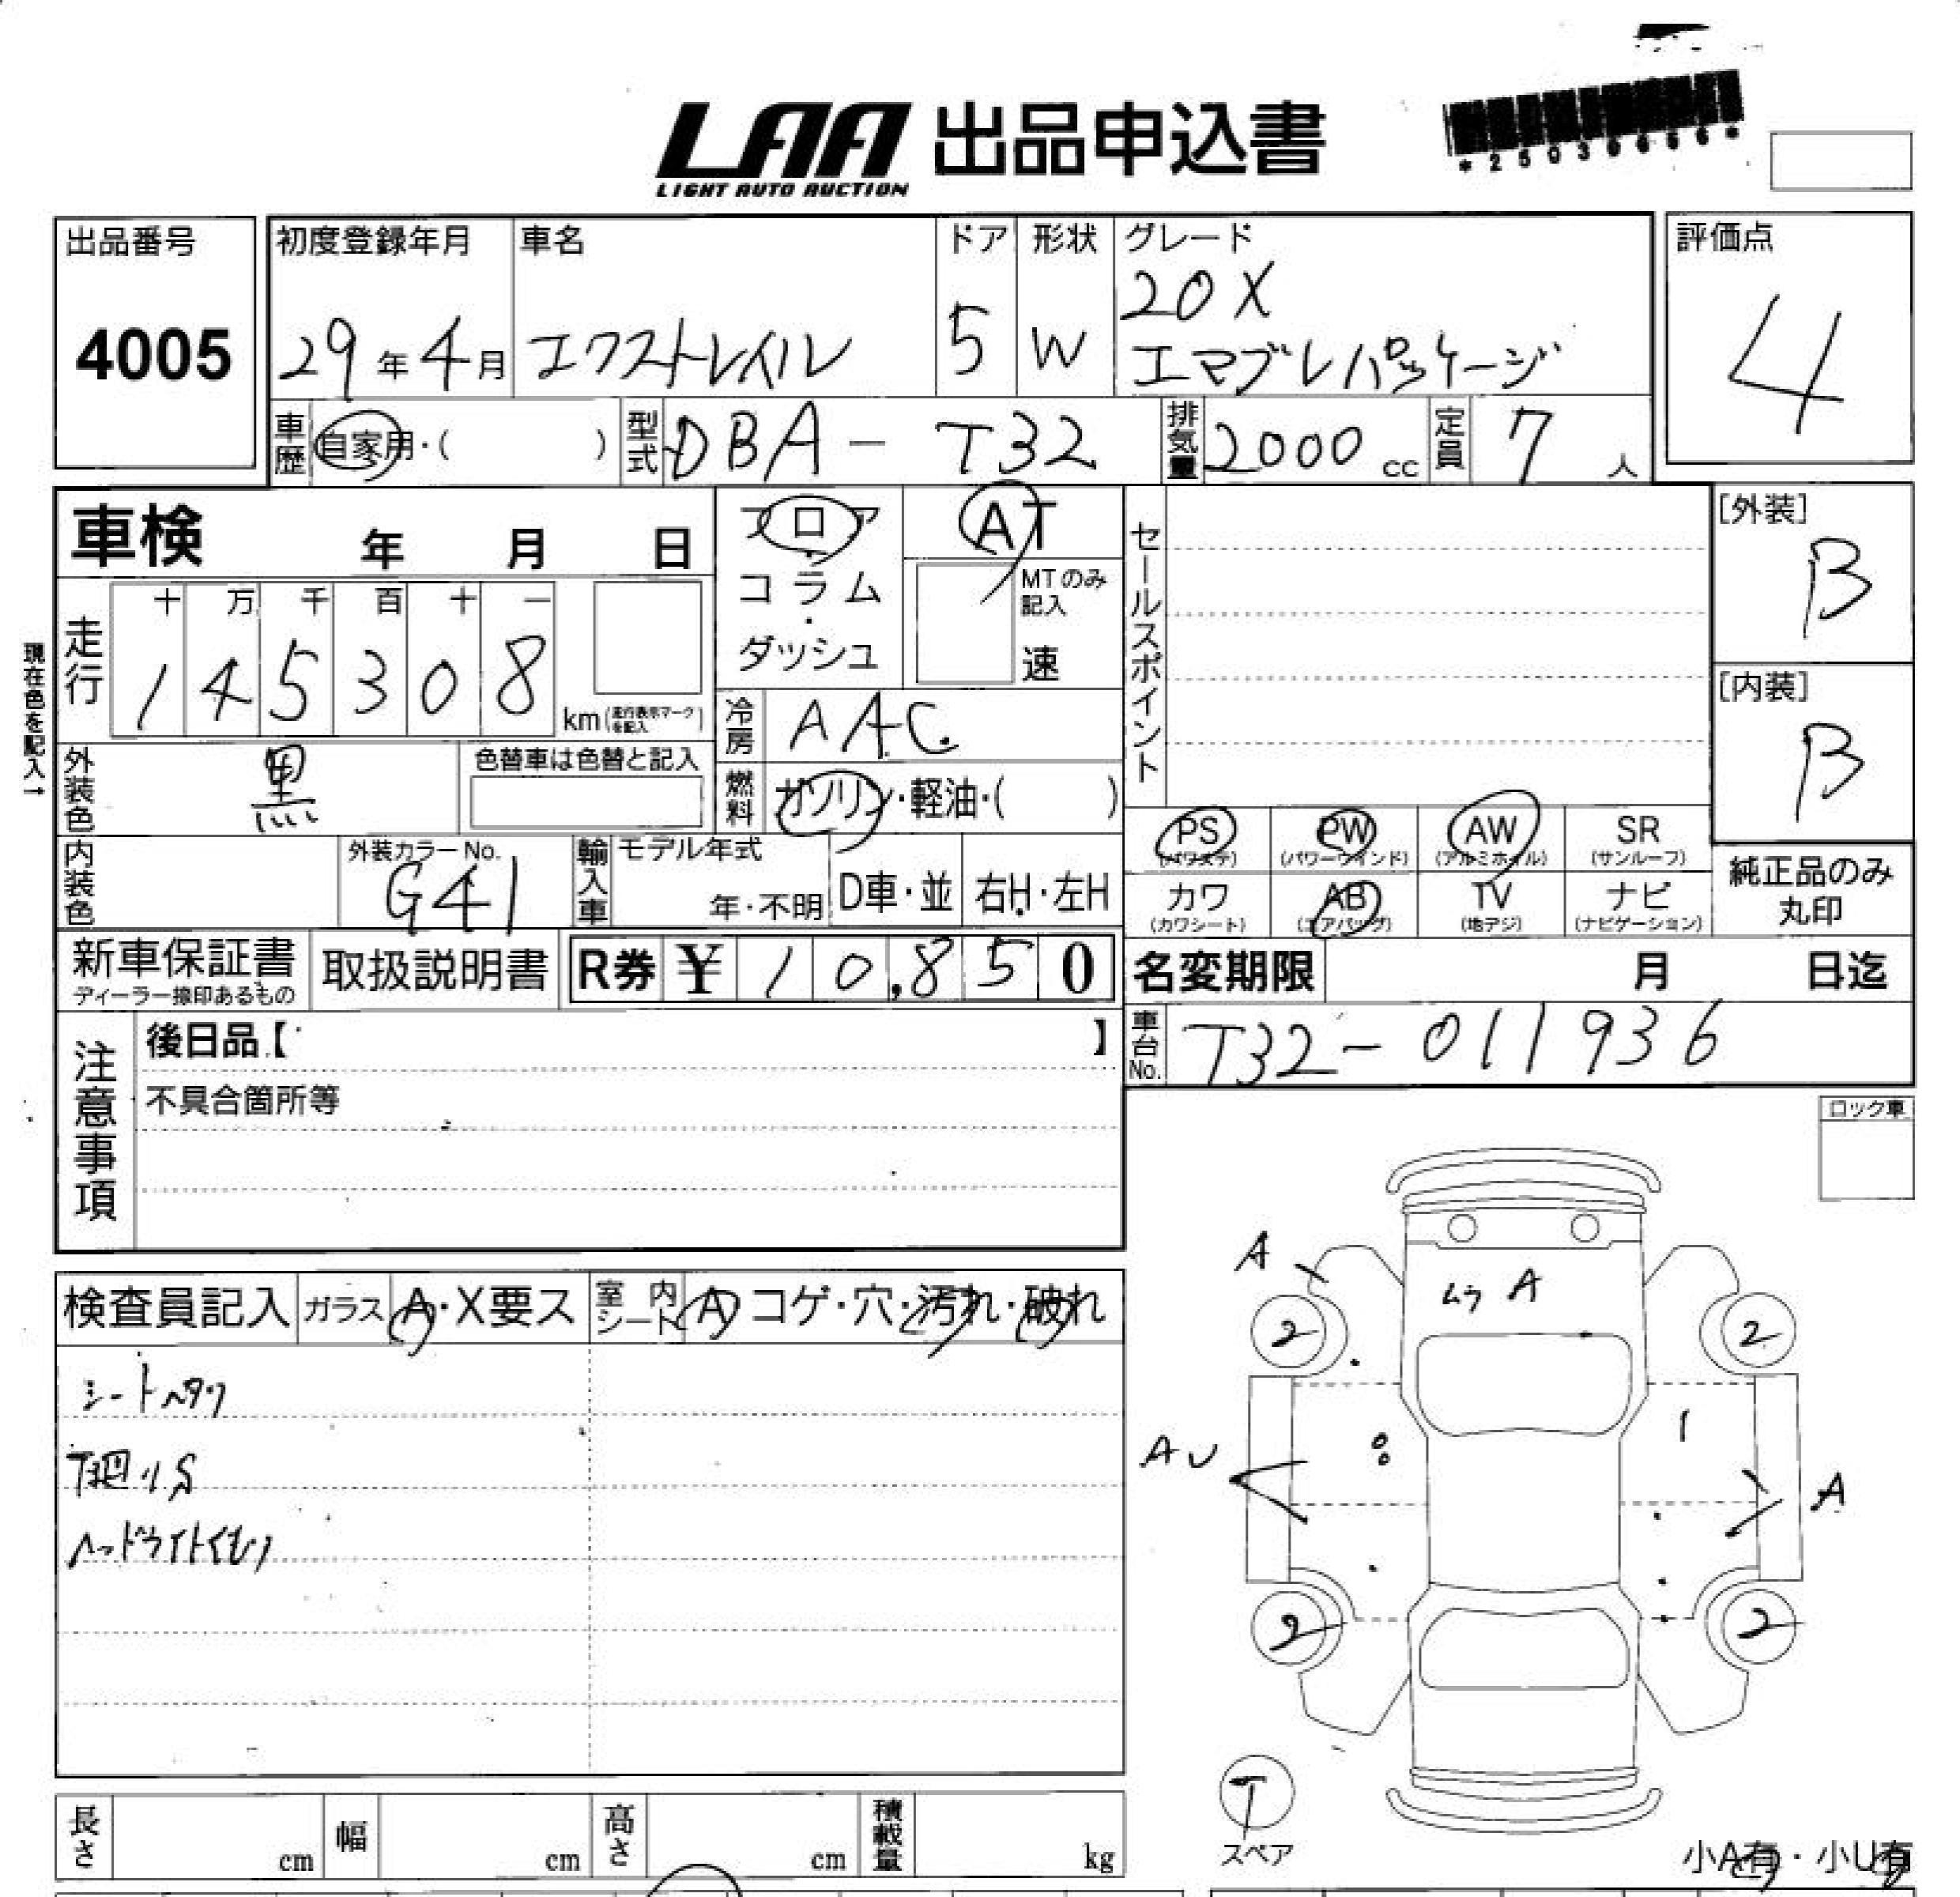 LAA 出品申込書
LIGHT AUTO AUCTION
出品番号
4005
初度登録年月
29年4月
車名
エクストレイル
ドア
5
形状
W
グレード
20X
エマブレパッケージ
評価点
4
車歴
自家用・( )
型式
DBA-T32
排気量
2000cc
定員
7人
車検 年 月 日
現在色を記入↑
走行
十万千百十一
145308
km(走行表示マークを記入)
フロア
コラム
・
ダッシュ
AT
MTのみ記入
速
冷房
AAC
燃料
ガソリン・軽油・( )
セールスポイント
[外装]
B
[内装]
B
外装色
黒
色替車は色替と記入
内装色
外装カラーNo.
G41
輸入車
モデル年式
年・不明
D車・並
右H・左H
PS
(パワステ)
PW
(パワーウインド)
AW
(アルミホイル)
SR
(サンルーフ)
カワ
(カワシート)
AB
(エアバッグ)
TV
(地デジ)
ナビ
(ナビゲーション)
純正品のみ
丸印
新車保証書
ディーラー捺印あるもの
取扱説明書
R券 ¥10,850
名変期限 月 日迄
車台No.
T32-011936
注意事項
後日品【 】
不具合箇所等
ロック車
検査員記入
ガラス
A・X要ス
室内シート
A コゲ・穴・汚れ・破れ
シートヘタリ
下廻りS
ヘッドライトくもり
A
ムラ A
2
2
AU
A
2
2
T
スペア
小A有・小U有
長さ cm
幅 cm
高さ cm
積載量 kg